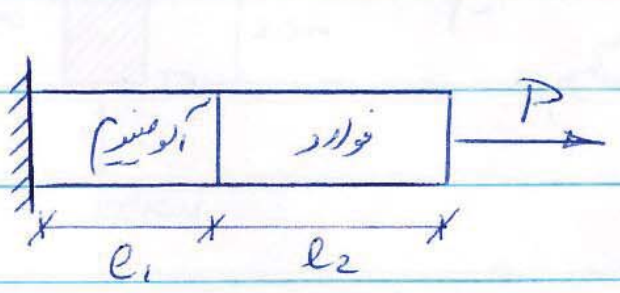 آلومینیوم فولاد P
l₁ l₂